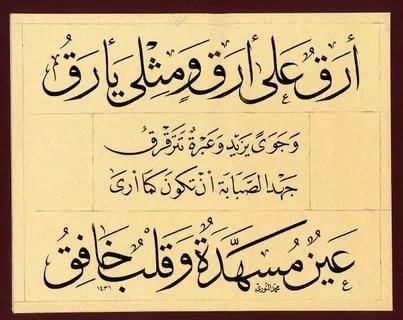 أَرَقٌ عَلَى أَرَقٍ وَمِثْلِي يَأْرَقُ
وَجَوًى يَزِيدُ وَعَبْرَةٌ تَتَرَقْرَقُ
جَهْدُ الصَّبَابَةِ أَنْ تَكُونَ كَمَا أَرَى
عَيْنٌ مُسَهَّدَةٌ وَقَلْبٌ خَافِقُ
١٤٣١